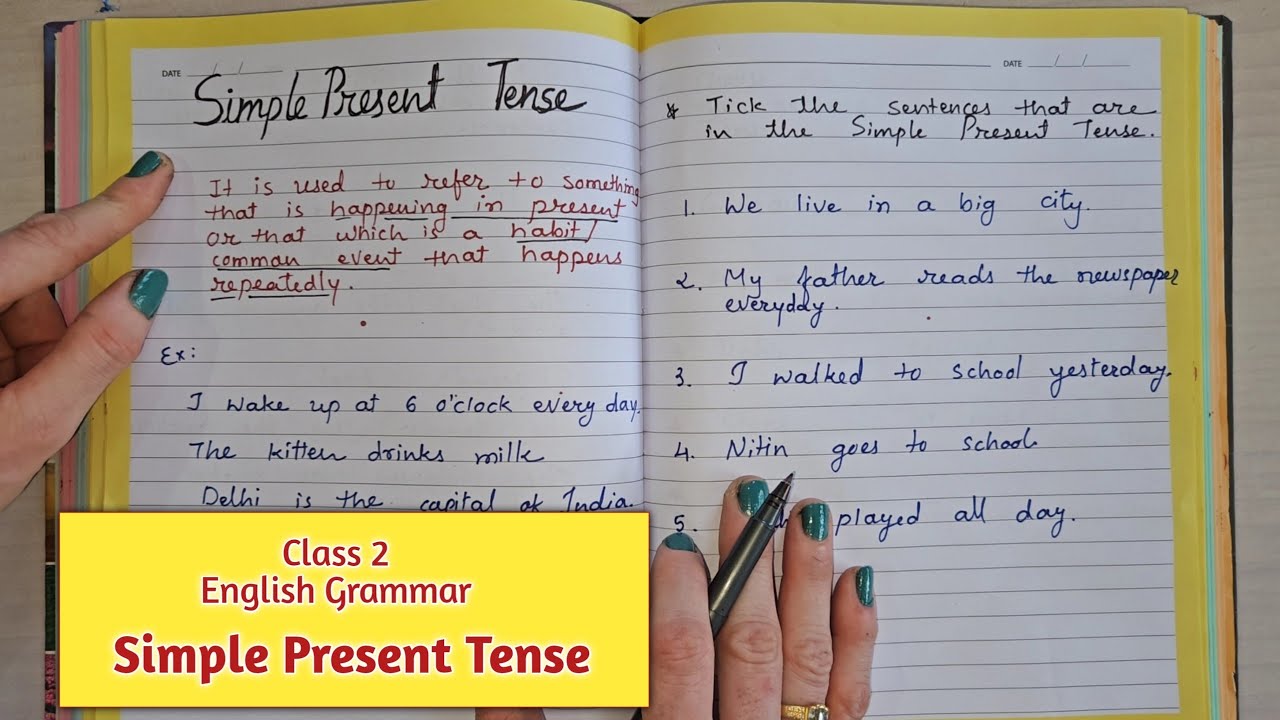 DATE / /
Simple Present Tense
It is used to refer to something
that is happening in present
or that which is a habit/
comman event that happens
repeatedly.
Ex:
I wake up at 6 o'clock every day.
The kitten drinks milk
Delhi is the capital of India.
DATE / /
* Tick the sentences that are
in the Simple Present Tense.
1. We live in a big city.
2. My father reads the newspaper
everyday.
3. I walked to school yesterday.
4. Nitin goes to school
5. played all day.
Class 2
English Grammar
Simple Present Tense